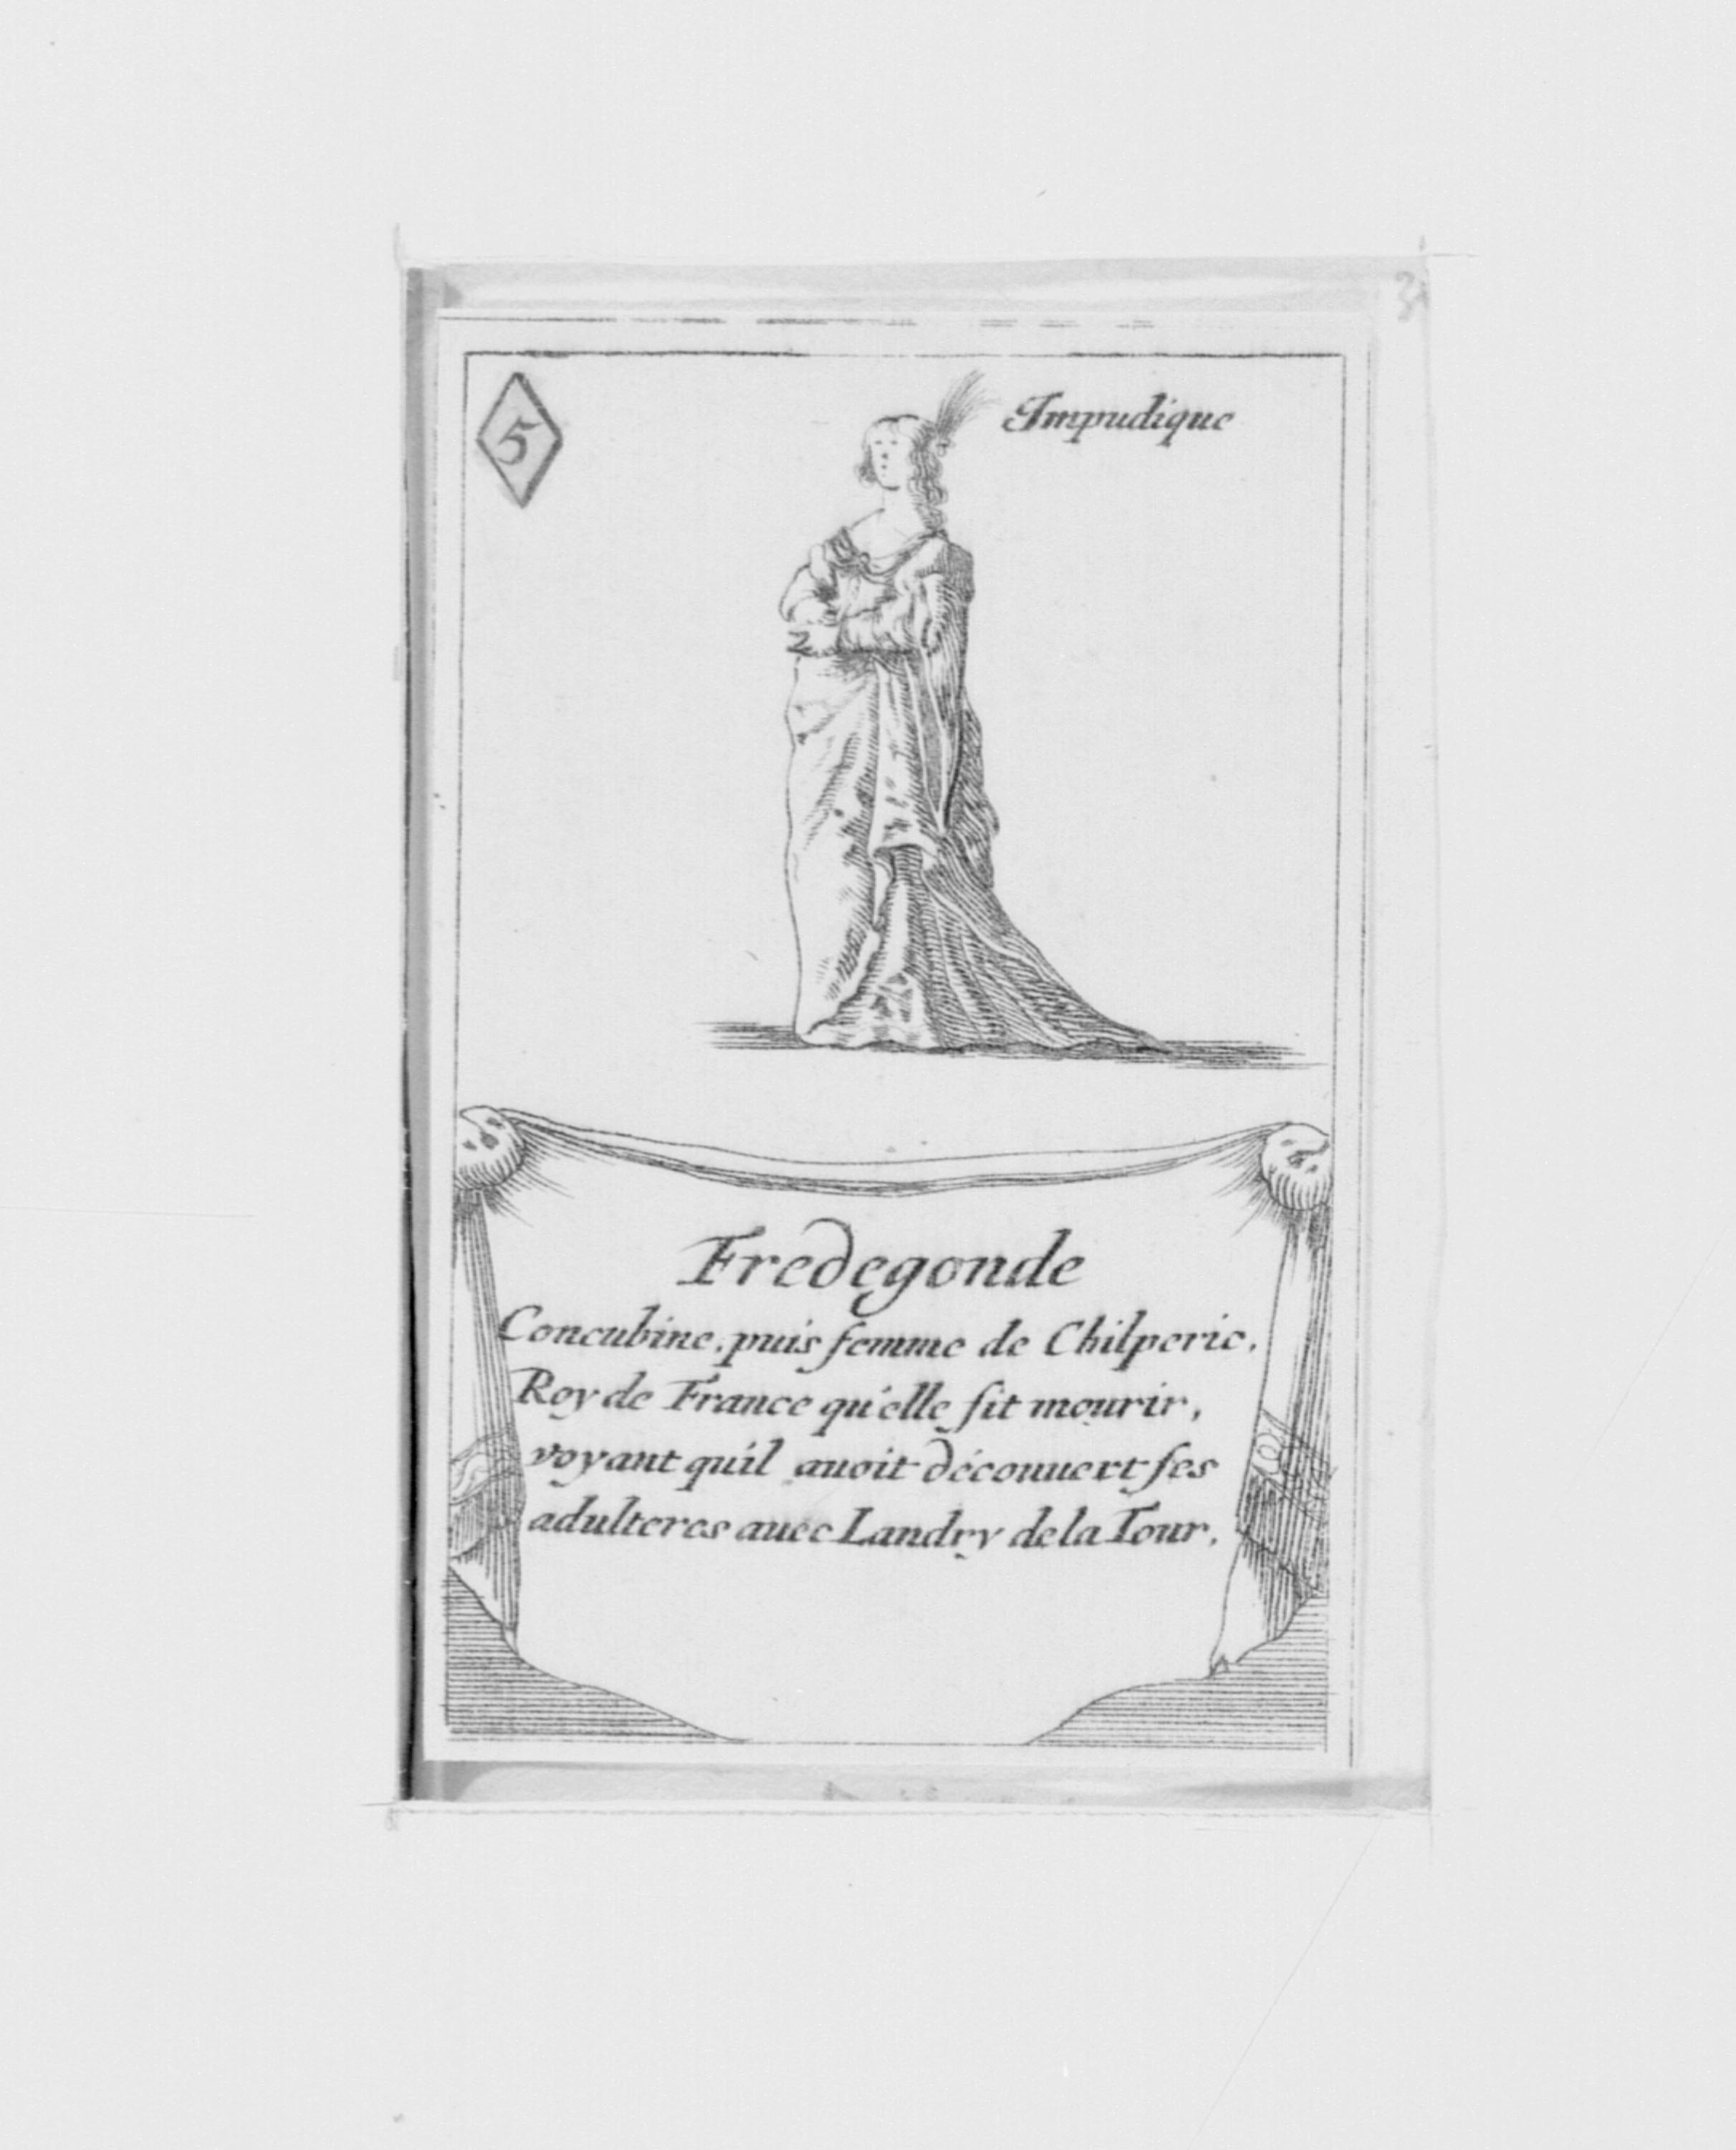 5
Impudique
Fredegonde
Concubine, puis femme de Chilperic,
Roy de France qu'elle fit mourir,
voyant qu'il auoit découuert ses
adulteres auec Landry de la Tour.